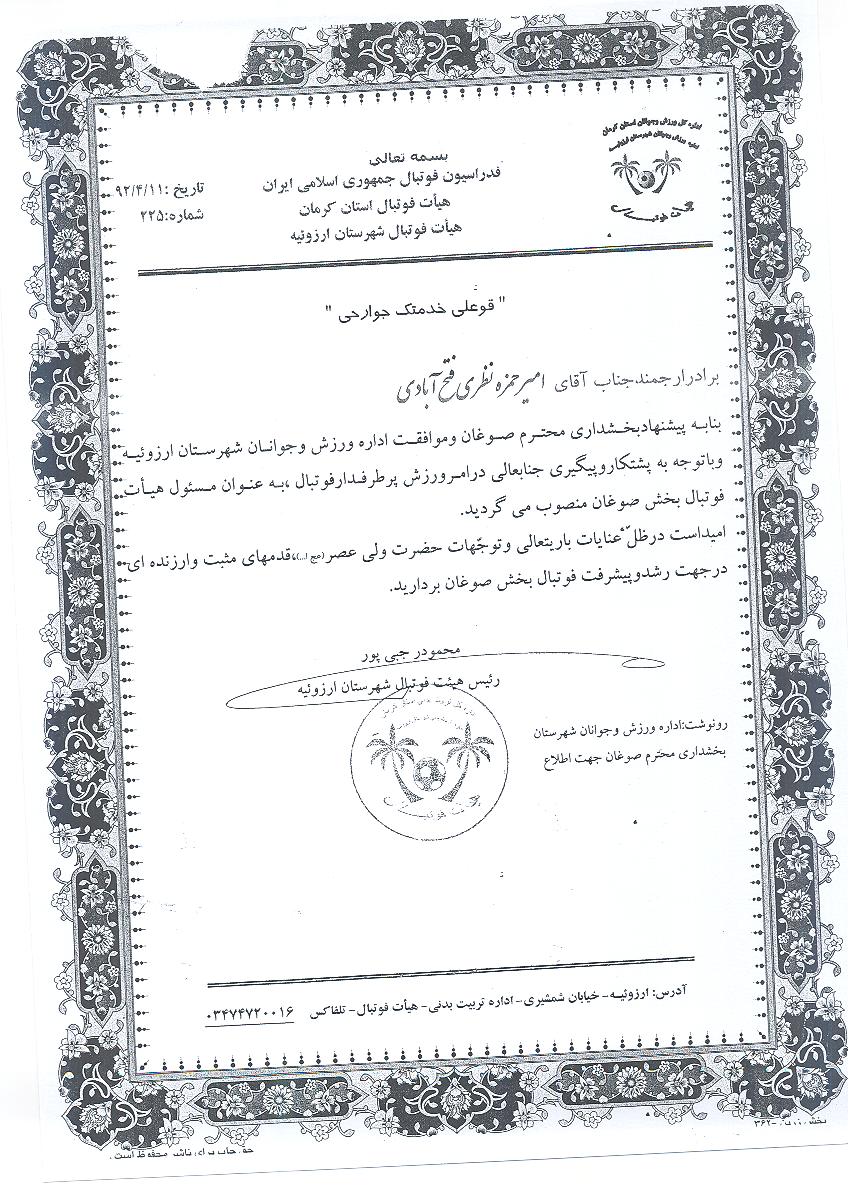 بسمه تعالی
فدراسیون فوتبال جمهوری اسلامی ایران
هیأت فوتبال استان کرمان
هیأت فوتبال شهرستان ارزوئیه
تاریخ :۹۲/۴/۱۱
شماره:۲۲۵
اداره کل ورزش وجوانان استان کرمان
اداره ورزش وجوانان شهرستان ارزوئیه
هیأت فوتبال
" قوعلی خدمتک جوارحی "
برادرارجمندجناب آقای امیرحمزه نظری فتح آبادی
بنابه پیشنهادبخشداری محترم صوغان وموافقت اداره ورزش وجوانان شهرستان ارزوئیه
وباتوجه به پشتکاروپیگیری جنابعالی درامرورزش پرطرفدارفوتبال ،به عنوان مسئول هیأت
فوتبال بخش صوغان منصوب می گردید.
امیداست درظلّ عنایات باریتعالی وتوجّهات حضرت ولی عصر(عج ا...)،قدمهای مثبت وارزنده ای
درجهت رشدوپیشرفت فوتبال بخش صوغان بردارید.
محمودر جبی پور
رئیس هیئت فوتبال شهرستان ارزوئیه
هیأت فوتبال
رونوشت:اداره ورزش وجوانان شهرستان
بخشداری محترم صوغان جهت اطلاع
آدرس: ارزوئیه- خیابان شمشیری- اداره تربیت بدنی- هیأت فوتبال- تلفاکس ۰۳۴۷۴۷۲۰۰۱۶
حق چاپ برای ناشر محفوظ است.